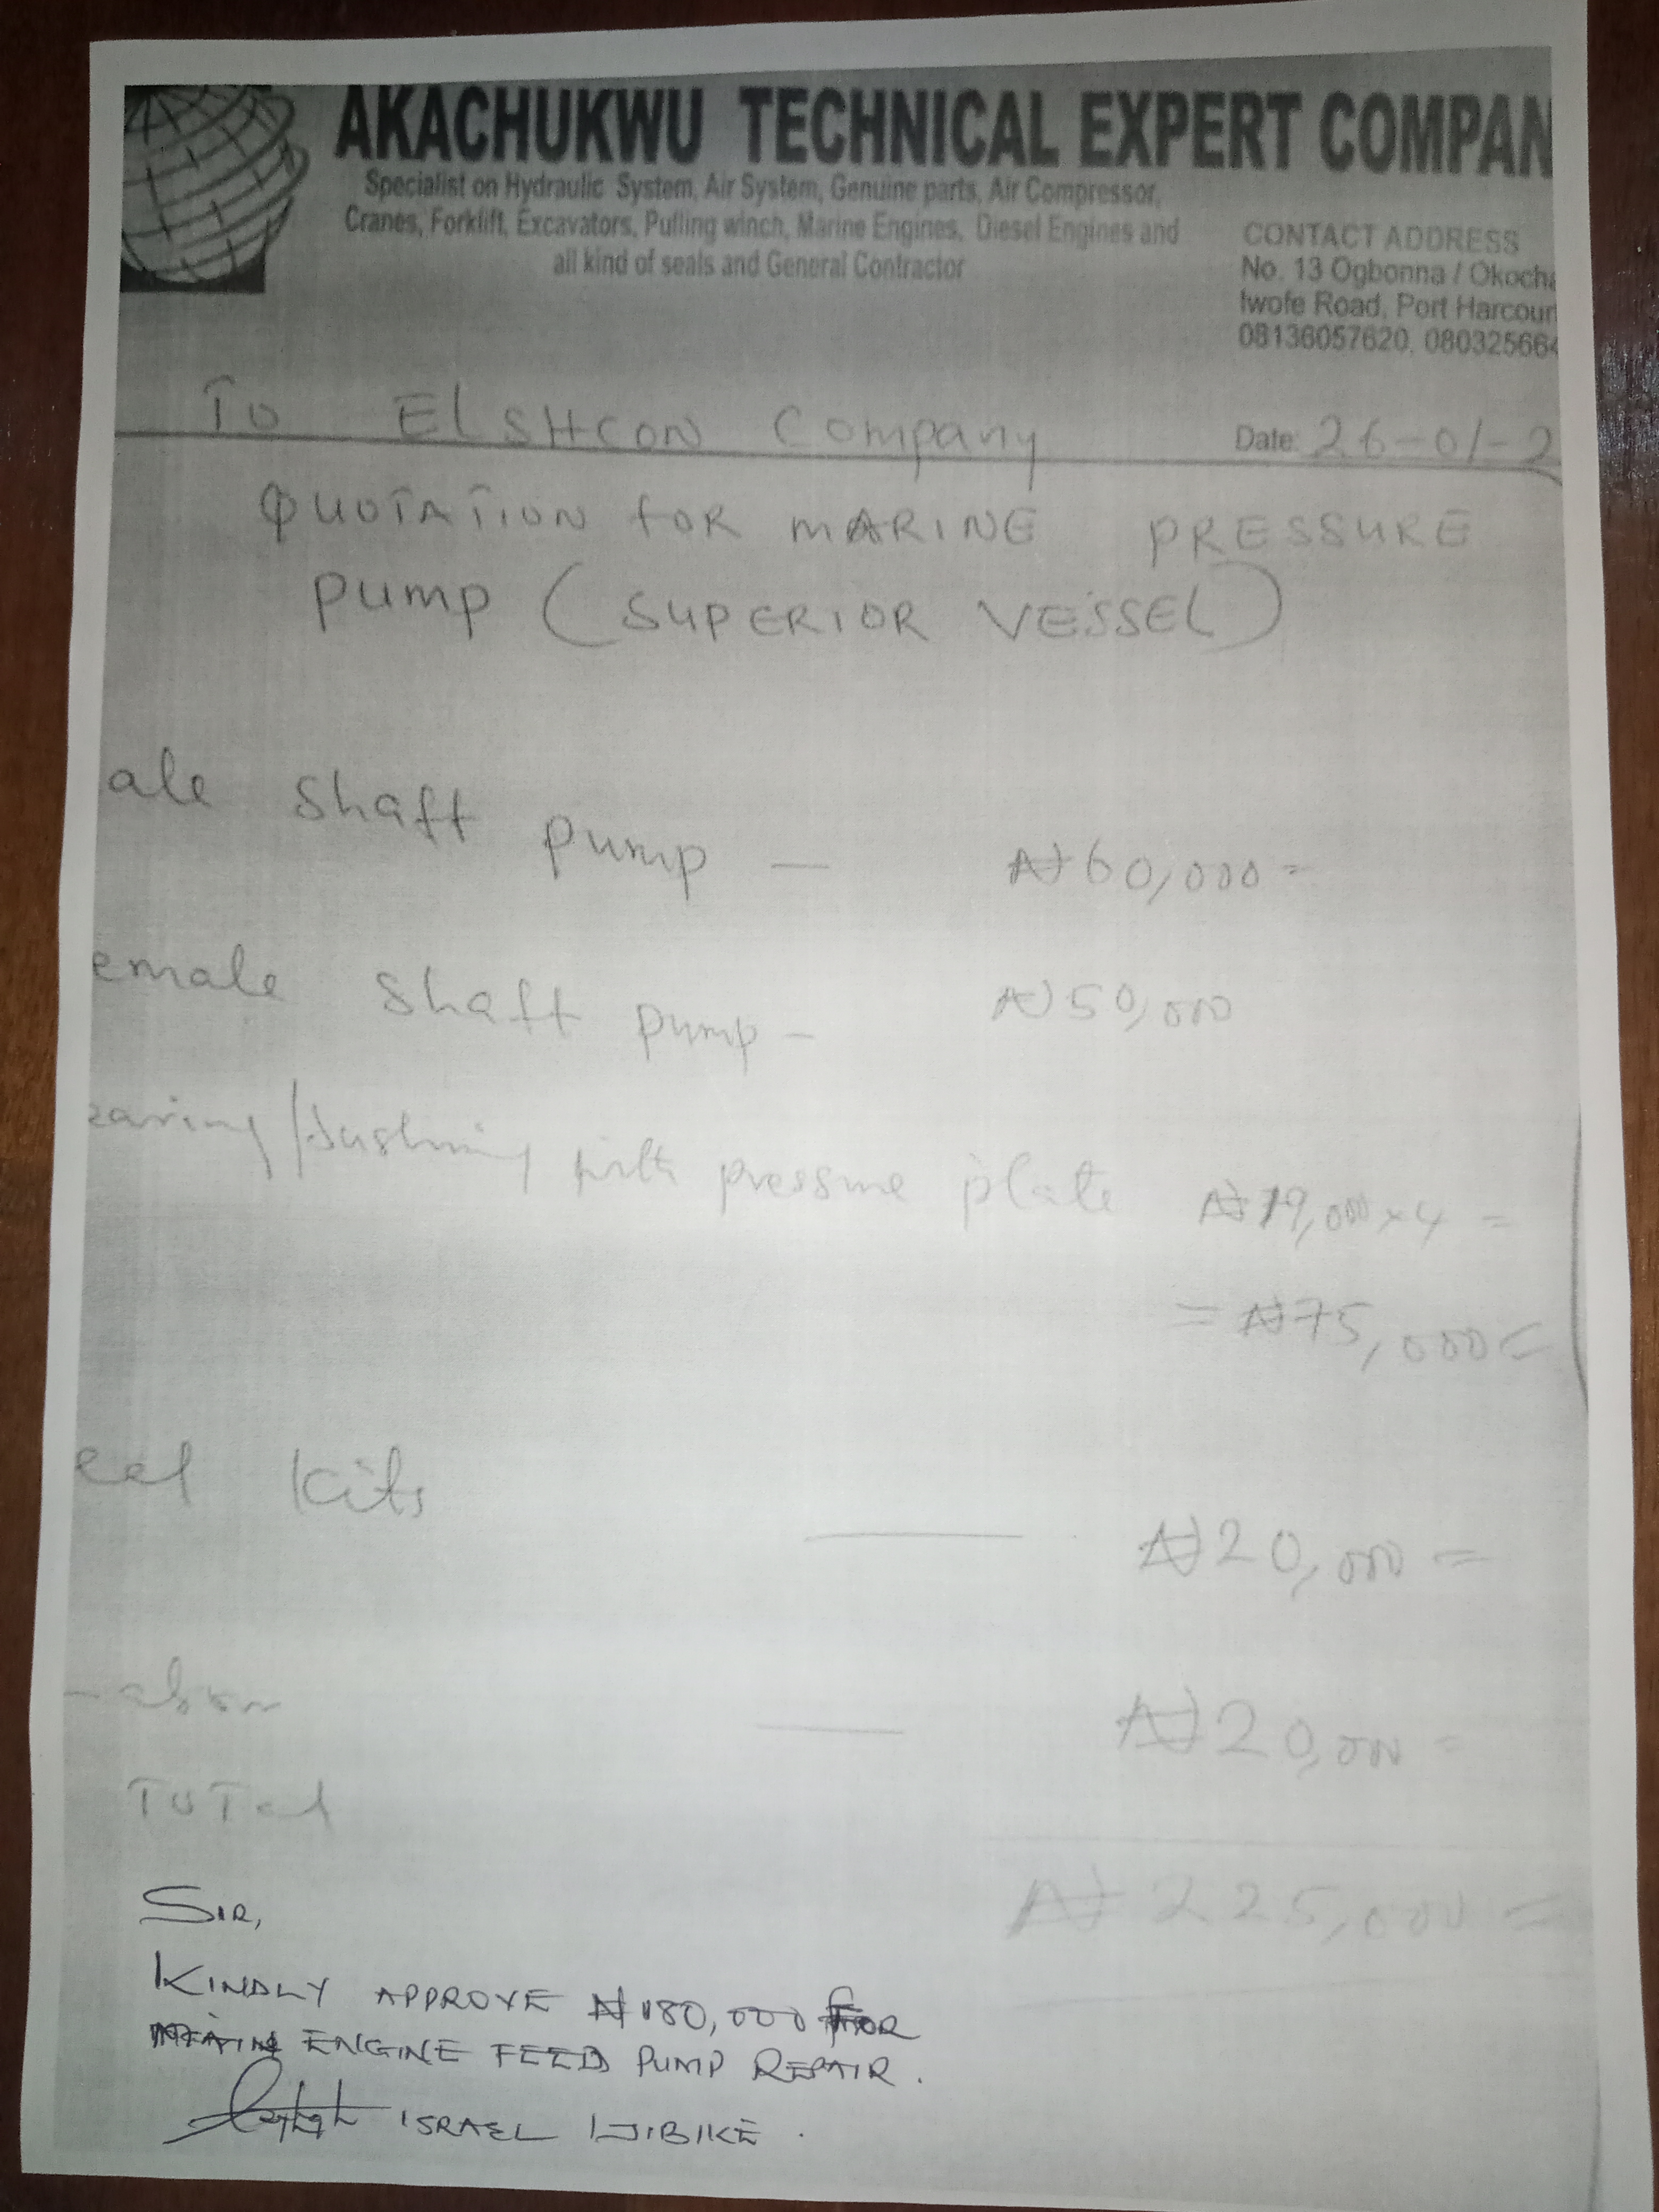 AKACHUKWU TECHNICAL EXPERT COMPAN
Specialist on Hydraulic System, Air System, Genuine parts, Air Compressor,
Cranes, Forklift, Excavators, Pulling winch, Marine Engines, Diesel Engines and
all kind of seals and General Contractor
CONTACT ADDRESS
No. 13 Ogbonna / Okocha
Iwofe Road, Port Harcour
08136057620, 080325664
To ElSHCON Company
Date: 26-01-2
QUOTATION FOR MARINE PRESSURE
pump (SUPERIOR VESSEL)
ale shaft pump — ₦60,000=
emale shaft pump - ₦50,000
earing/bushing with pressure plate ₦19,000 x 4 =
= ₦75,000=
eel kits — ₦20,000=
abour — ₦20,000=
ToTal
₦225,000=
SIR,
KINDLY APPROVE ₦180,000 FOR
MAIN ENGINE FEED PUMP REPAIR.
ISRAEL IJIBIKE.